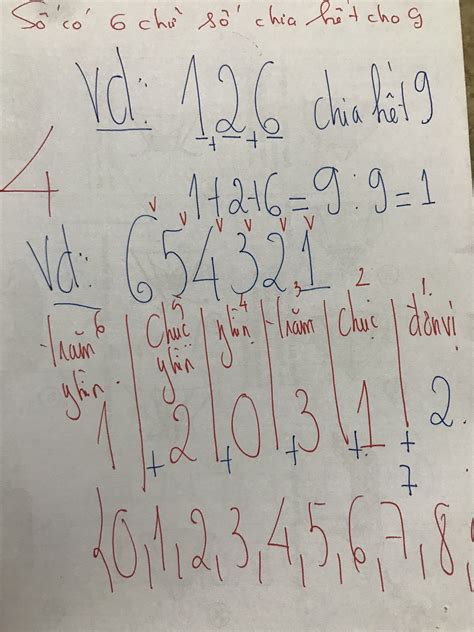 Số có 6 chữ số chia hết cho 9
Vd: 126 chia hết 9
+ +
4
1+2+6=9:9=1
v v v v v v
Vd: 654321
6 5 4 3 2 1
trăm nghìn chục nghìn nghìn trăm chục đơn vị
1 + 2 + 0 + 3 + 1 + 2.
7
{0,1,2,3,4,5,6,7,8,